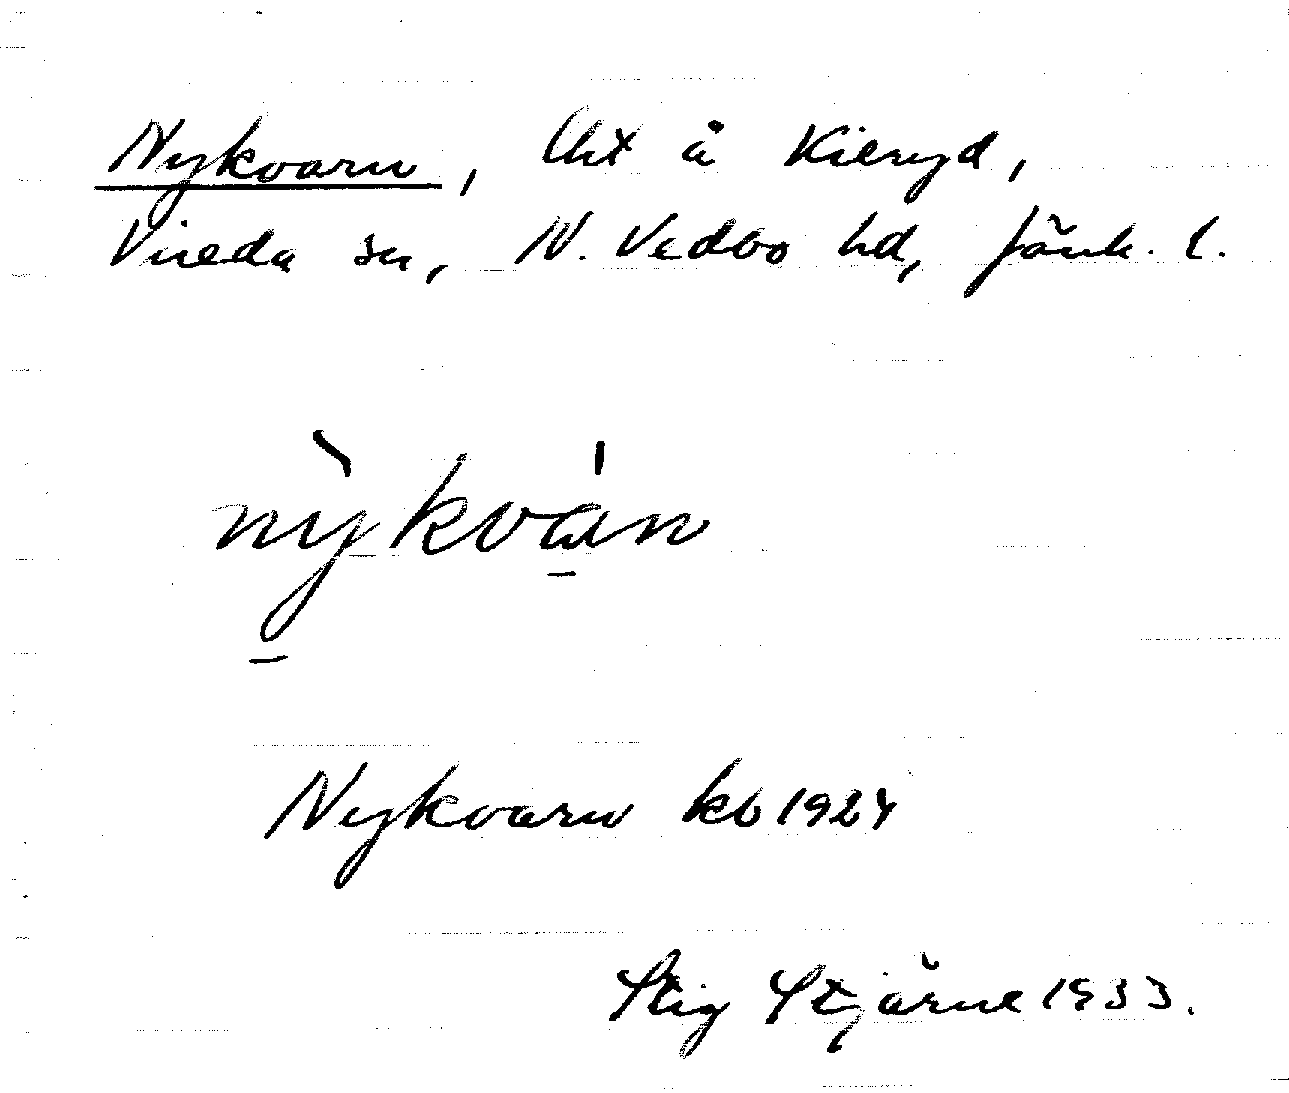 Nykvarn, Uht å Kieryd,
Vireda sn, N. Vedbo hd, Jönk. l.
nỳkván
Nykvarn kb 1924
Stig Stjärne 1933.